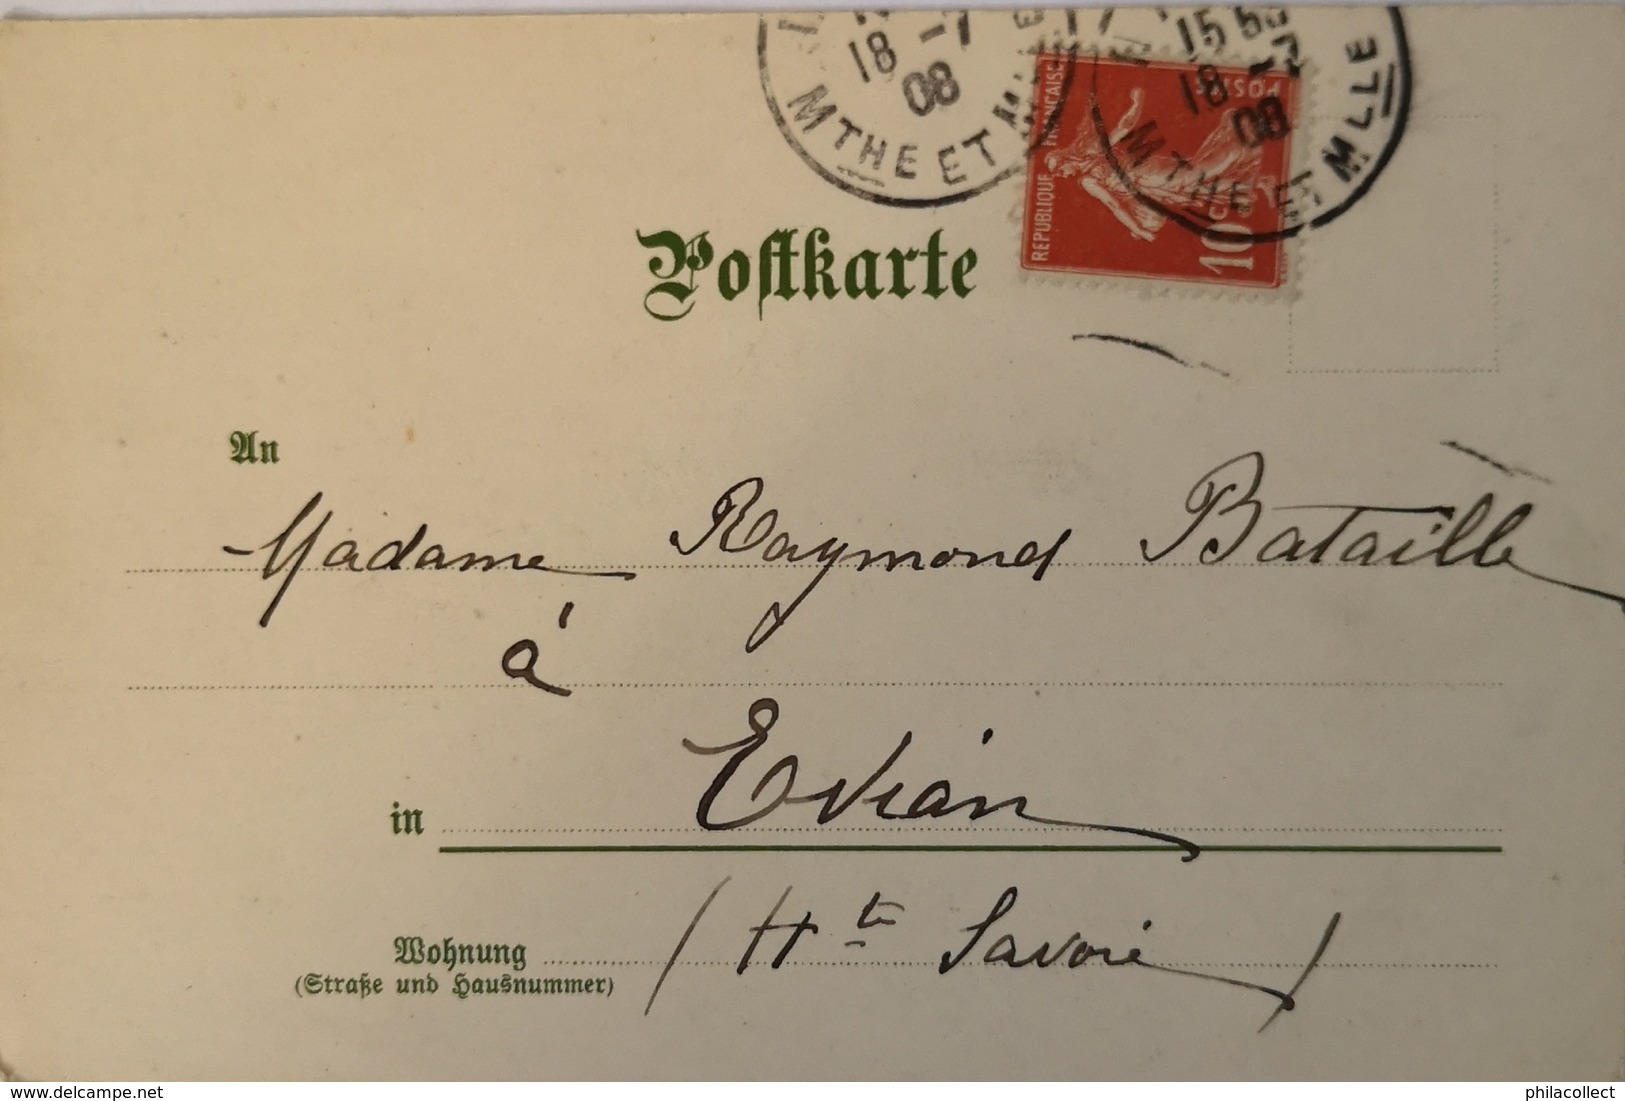 18 -7
08
MTHE ET M
15
18 -7
08
MTHE ET MLLE
REPUBLIQUE FRANÇAISE
POSTES
10 C
Postkarte
An
Madame Raymond Bataille
à
in Evian
Wohnung (Hte Savoie)
(Straße und Hausnummer)
www.delcampe.net
philacollect